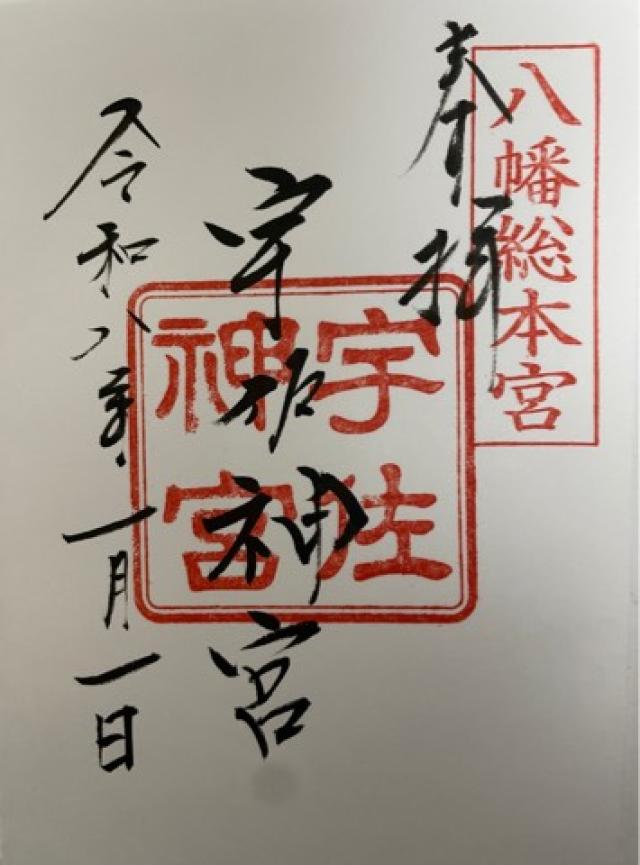 八幡総本宮
奉拝
宇佐神宮
宇佐神宮
令和八年一月一日